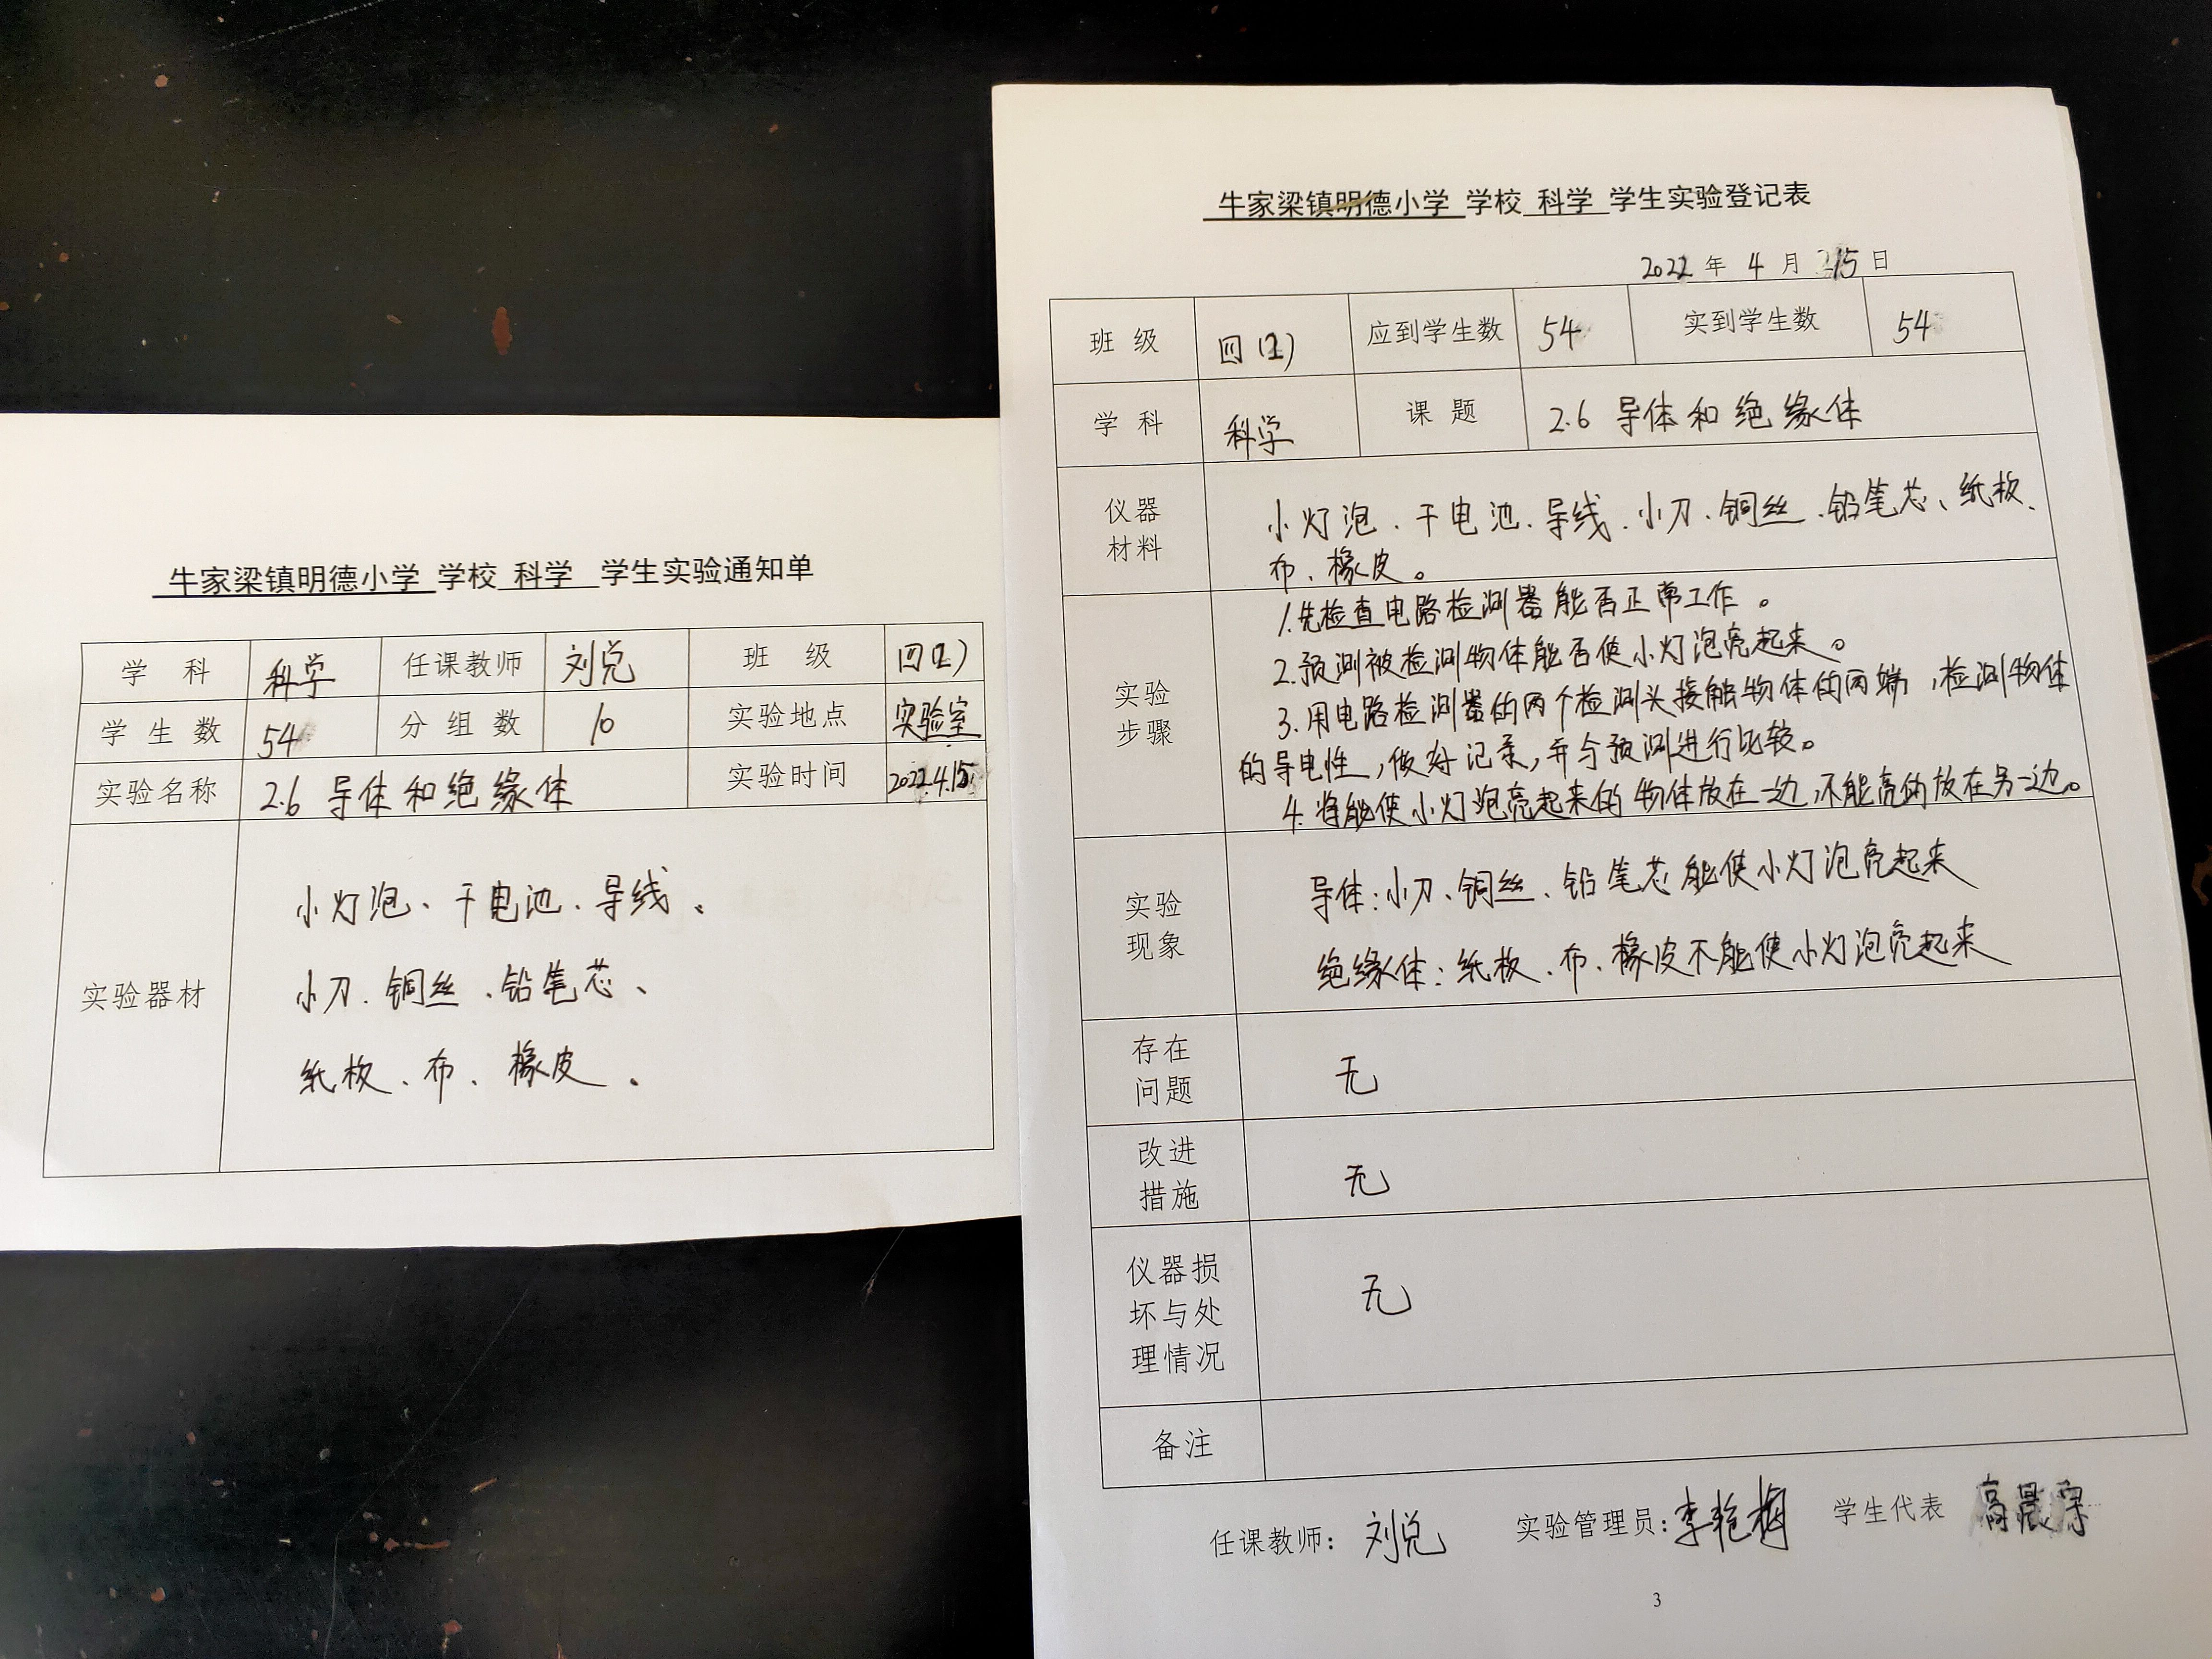 牛家梁镇明德小学 学校 科学 学生实验通知单
学 科 科学 任课教师 刘兑 班 级
学生数 54 分组数 10 实验地点 实验室
实验名称 2.6 导体和绝缘体 实验时间 2022.4.15
实验器材
小灯泡、干电池、导线。
小刀、铜丝、铅笔芯、
纸板、布、橡皮。
牛家梁镇明德小学 学校 科学 学生实验登记表
2022 年 4 月 15 日
班 级 应到学生数 54 实到学生数 54
学 科 科学 课 题 2.6 导体和绝缘体
仪器
材料
小灯泡、干电池、导线、小刀、铜丝、铅笔芯、纸板、
布、橡皮。
实验
步骤
1.先检查电路检测器能否正常工作。
2.预测被检测物体能否使小灯泡亮起来。
3.用电路检测器的两个检测头接触物体的两端,检测物体
的导电性,做好记录,并与预测进行比较。
4.将能使小灯泡亮起来的物体放在一边,不能亮的放在另一边。
实验
现象
导体:小刀、铜丝、铅笔芯能使小灯泡亮起来
绝缘体:纸板、布、橡皮不能使小灯泡亮起来
存在
问题
无
改进
措施
无
仪器损
坏与处
理情况
无
备注
任课教师: 刘兑 实验管理员:李艳梅 学生代表
3